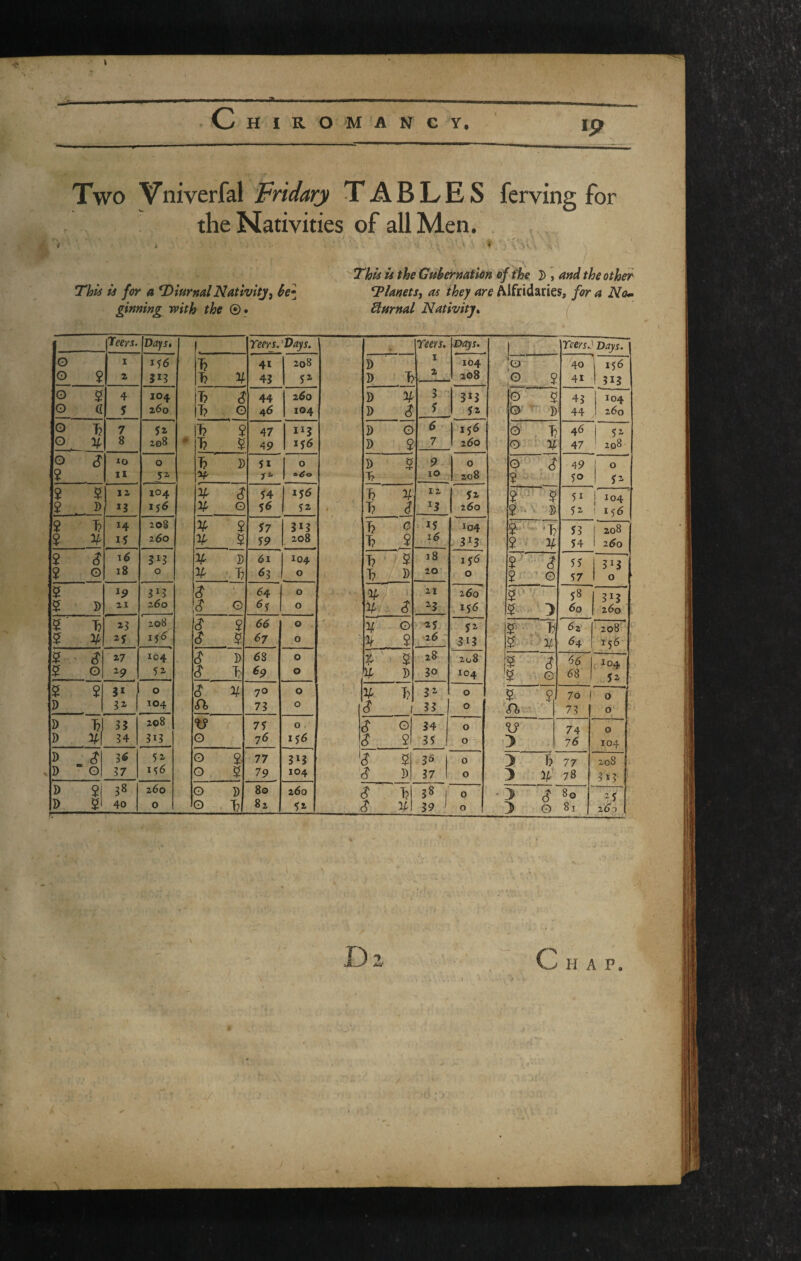 CHIROMANCY. 19
Two Vniverſal Fridary TABLES ſerving for
the Nativities of all Men.
This is for a Diurnal Nativity, be-
ginning with the ☉.
This is the Gubernation of the ☽, and the other
Planets, as they are Alfridaries, for a No-
cturnal Nativity.
Yeers. Days. Yeers. Days.
☉ 1 156 ♄ 41 208
☉ ♀ 2 313 ♄ ♃ 43 52
☉ ☿ 4 104 ♄ ♂ 44 260
☉ ☾ 5 260 ♄ ☉ 46 104
☉ ♄ 7 52 ♄ ♀ 47 113
☉ ♃ 8 208 ♄ ☿ 49 156
☉ ♂ 10 0 ♄ ☽ 51 0
♀ 11 52 ♃ 52 260
♀ ☿ 12 104 ♃ ♂ 54 156
♀ ☽ 13 156 ♃ ☉ 56 52
♀ ♄ 14 208 ♃ ♀ 57 313
♀ ♃ 15 260 ♃ ☿ 59 208
♀ ♂ 16 313 ♃ ☽ 61 104
♀ ☉ 18 0 ♃ ♄ 63 0
☿ 19 313 ♂ 64 0
☿ ☽ 21 260 ♂ ☉ 65 0
☿ ♄ 23 208 ♂ ♀ 66 0
☿ ♃ 25 156 ♂ ☿ 67 0
☿ ♂ 27 104 ♂ ☽ 68 0
☿ ☉ 29 52 ♂ ♄ 69 0
☿ ♀ 31 0 ♂ ♃ 70 0
☽ 32 104 ☊ 73 0
☽ ♄ 33 208 ☋ 75 0
☽ ♃ 34 313 ☉ 76 156
☽ ♂ 36 52 ☉ ♀ 77 313
☽ ☉ 37 156 ☉ ☿ 79 104
☽ ♀ 38 260 ☉ ☽ 80 260
☽ ☿ 40 0 ☉ ♄ 82 52
Yeers. Days. Yeers. Days.
☽ 1 104 ☉ 40 156
☽ ♄ 2 208 ☉ ♀ 41 313
☽ ♃ 3 313 ☉ ☿ 43 104
☽ ♂ 5 52 ☉ ☽ 44 260
☽ ☉ 6 156 ☉ ♄ 46 52
☽ ♀ 7 260 ☉ ♃ 47 208
☽ ☿ 9 0 ☉ ♂ 49 0
♄ 10 208 ♀ 50 52
♄ ♃ 12 52 ♀ ☿ 51 104
♄ ♂ 13 260 ♀ ☽ 52 156
♄ ☉ 15 104 ♀ ♄ 53 208
♄ ♀ 16 313 ♀ ♃ 54 260
♄ ☿ 18 156 ♀ ♂ 55 313
♄ ☽ 20 0 ♀ ☉ 57 0
♃ 21 260 ☿ 58 313
♃ ♂ 23 156 ☿ ☽ 60 260
♃ ☉ 25 52 ☿ ♄ 62 208
♃ ♀ 26 313 ☿ ♃ 64 156
♃ ☿ 28 208 ☿ ♂ 66 104
♃ ☽ 30 104 ☿ ☉ 68 52
♃ ♄ 32 0 ☿ ♀ 70 0
♂ 33 0 ☊ 73 0
♂ ☉ 34 0 ☋ 74 0
♂ ♀ 35 0 ☽ 76 104
♂ ☿ 36 0 ☽ ♄ 77 208
♂ ☽ 37 0 ☽ ♃ 78 313
♂ ♄ 38 0 ☽ ♂ 80 25
♂ ♃ 39 0 ☽ ☉ 81 260
D2 CHAP.